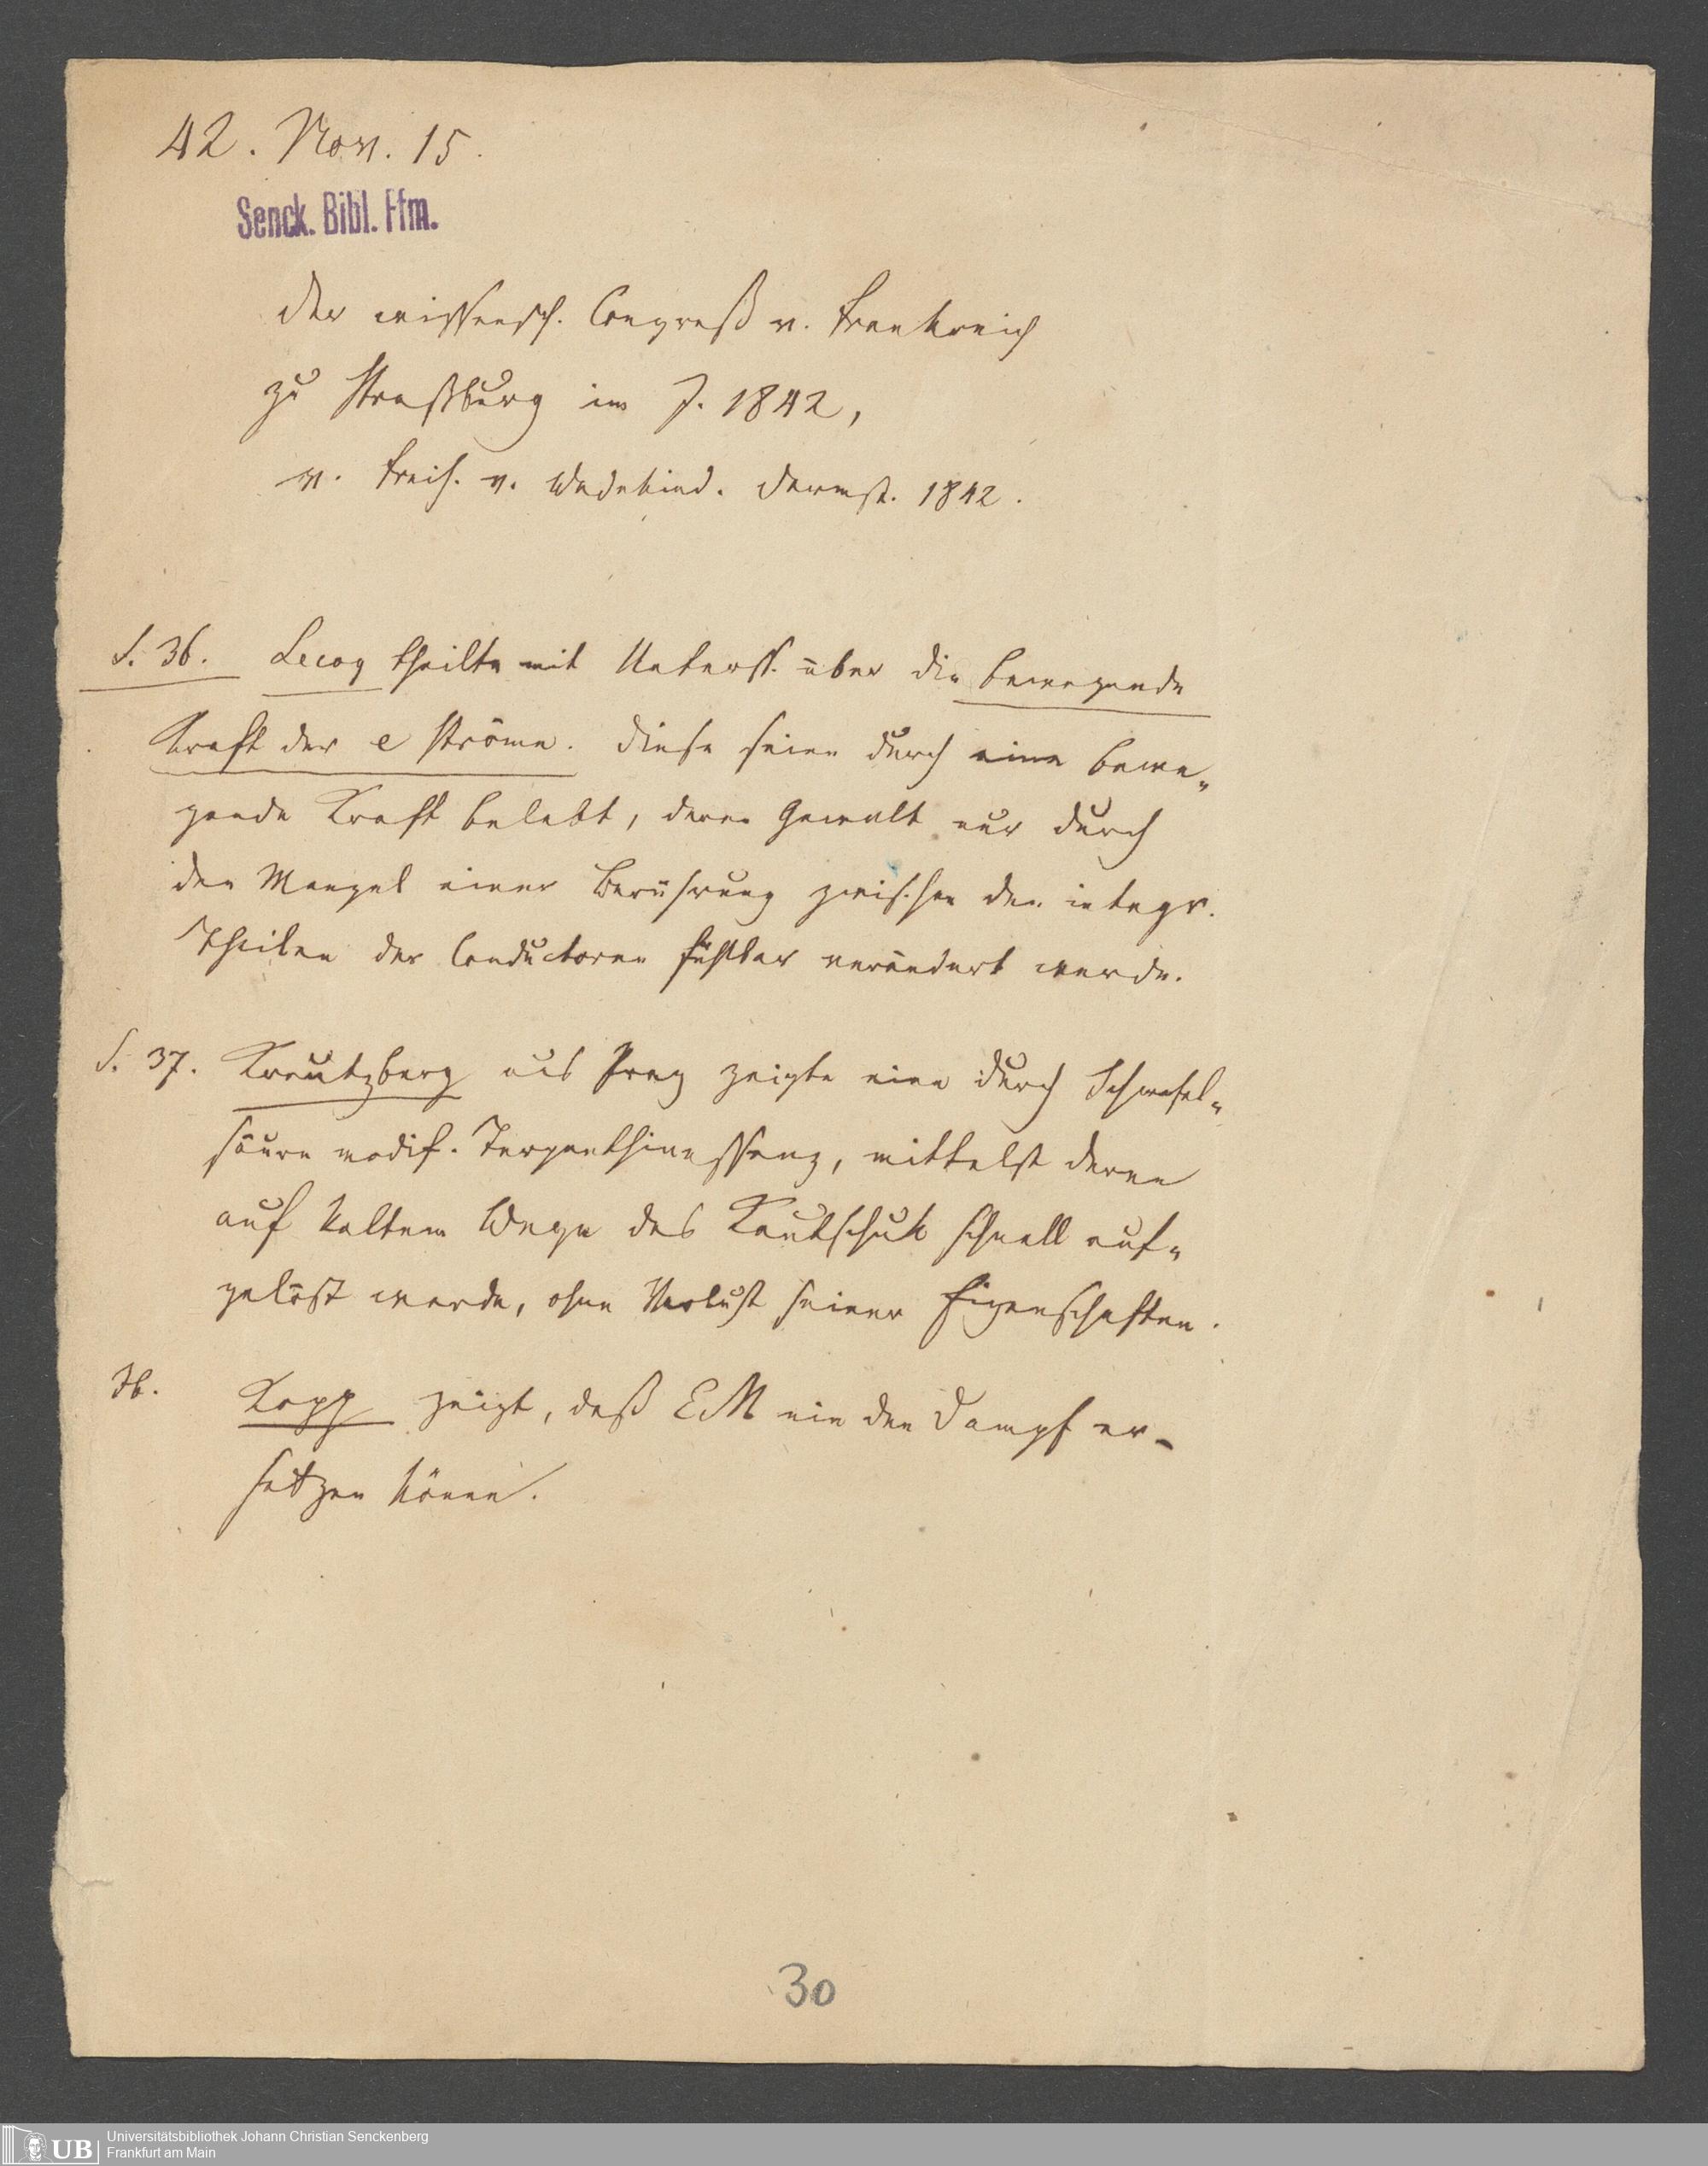 42. Nov. 15.
Senck. Bibl. Ffm.
Der wissensch. Congreß v. Frankreich
zu Straßburg im J. 1842,
v. Freih. v. Wedekind. Darmst. 1842.
S. 36. Lecoq theilte mit Unterss. über die bewegende
Kraft der e Ströme. Diese seien durch eine bewe-
gende Kraft belebt, deren Gewalt nur durch
den Mangel einer Berührung zwischen den integr.
Theilen der Conductoren fühlbar verändert werde.
S. 37. Kreutzberg aus Prag zeigte eine durch Schwefel-
säure modif. Terpenthinessenz, mittelst deren
auf kaltem Wege das Kautschuk schnell auf-
gelöst werde, ohne Verlust seiner Eigenschaften.
Ib. Kopp zeigt, daß EM nie den Dampf er-
setzen könne.
30
UB
Universitätsbibliothek Johann Christian Senckenberg
Frankfurt am Main